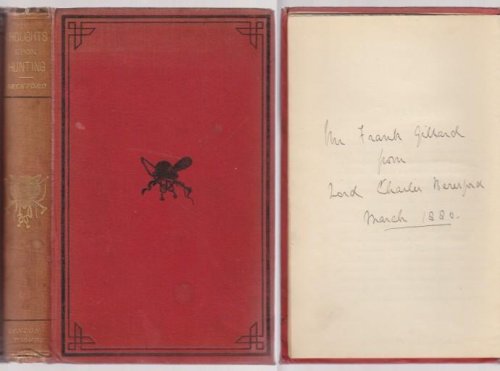 THOUGHTS
UPON
HUNTING
BECKFORD
LONDON
Mr Frank Gillard
from
Lord Charles Beresford
March 1880.